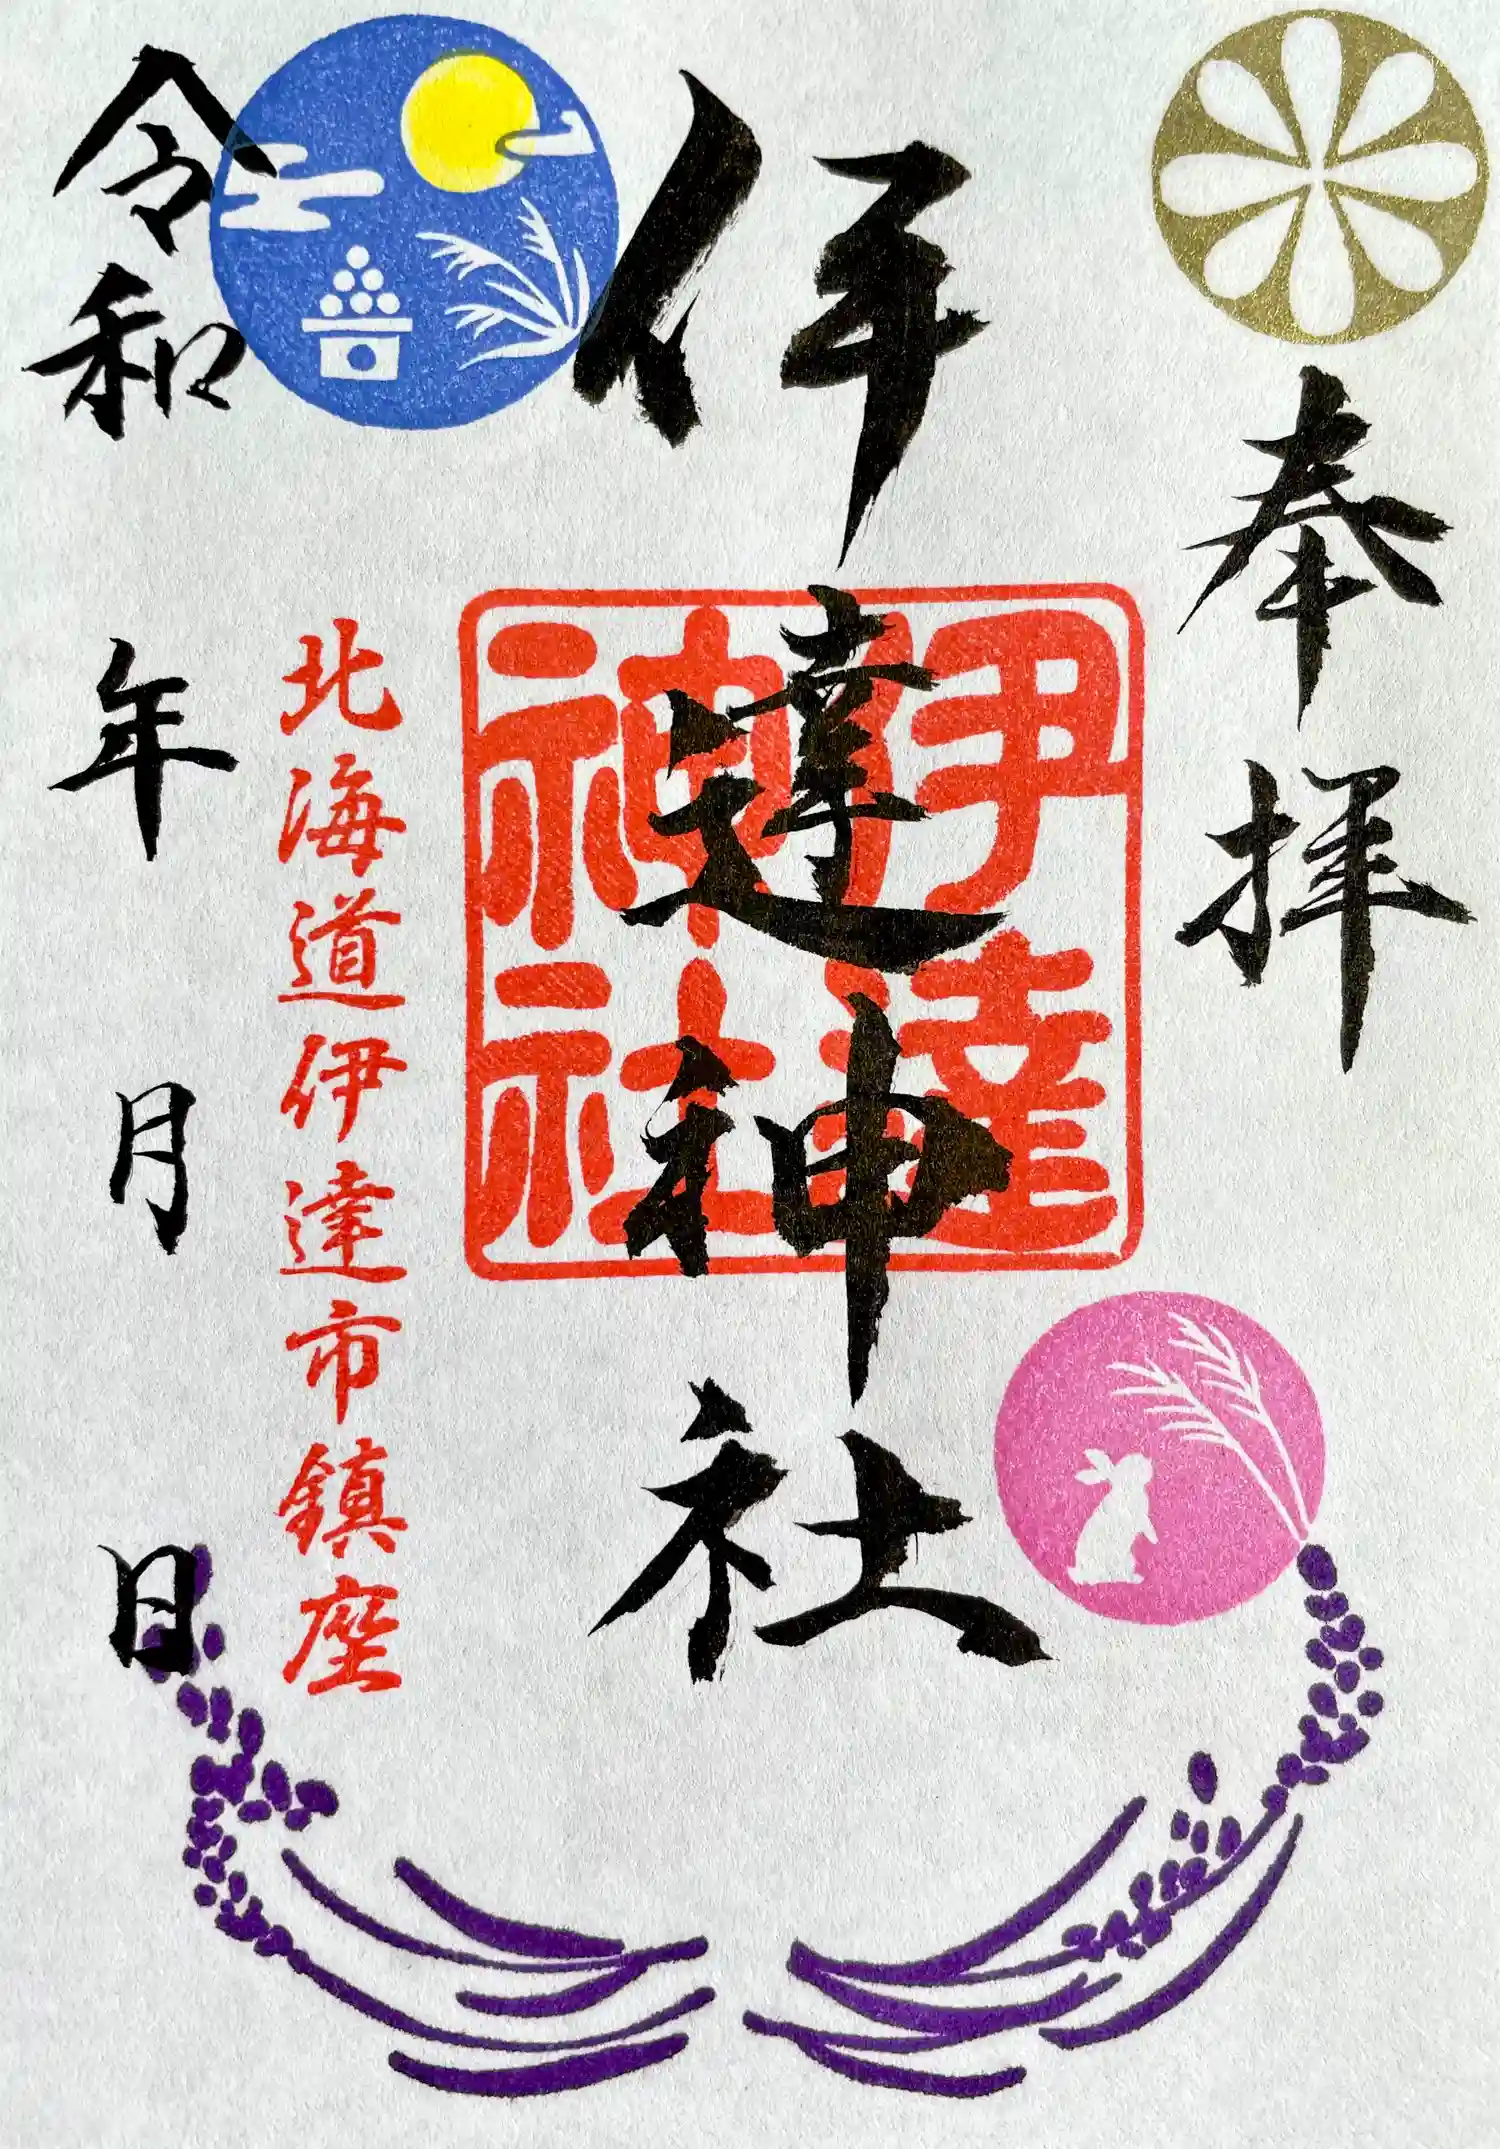 奉拝
伊達神社
伊達
神社
北海道伊達市鎮座
令和 年 月 日